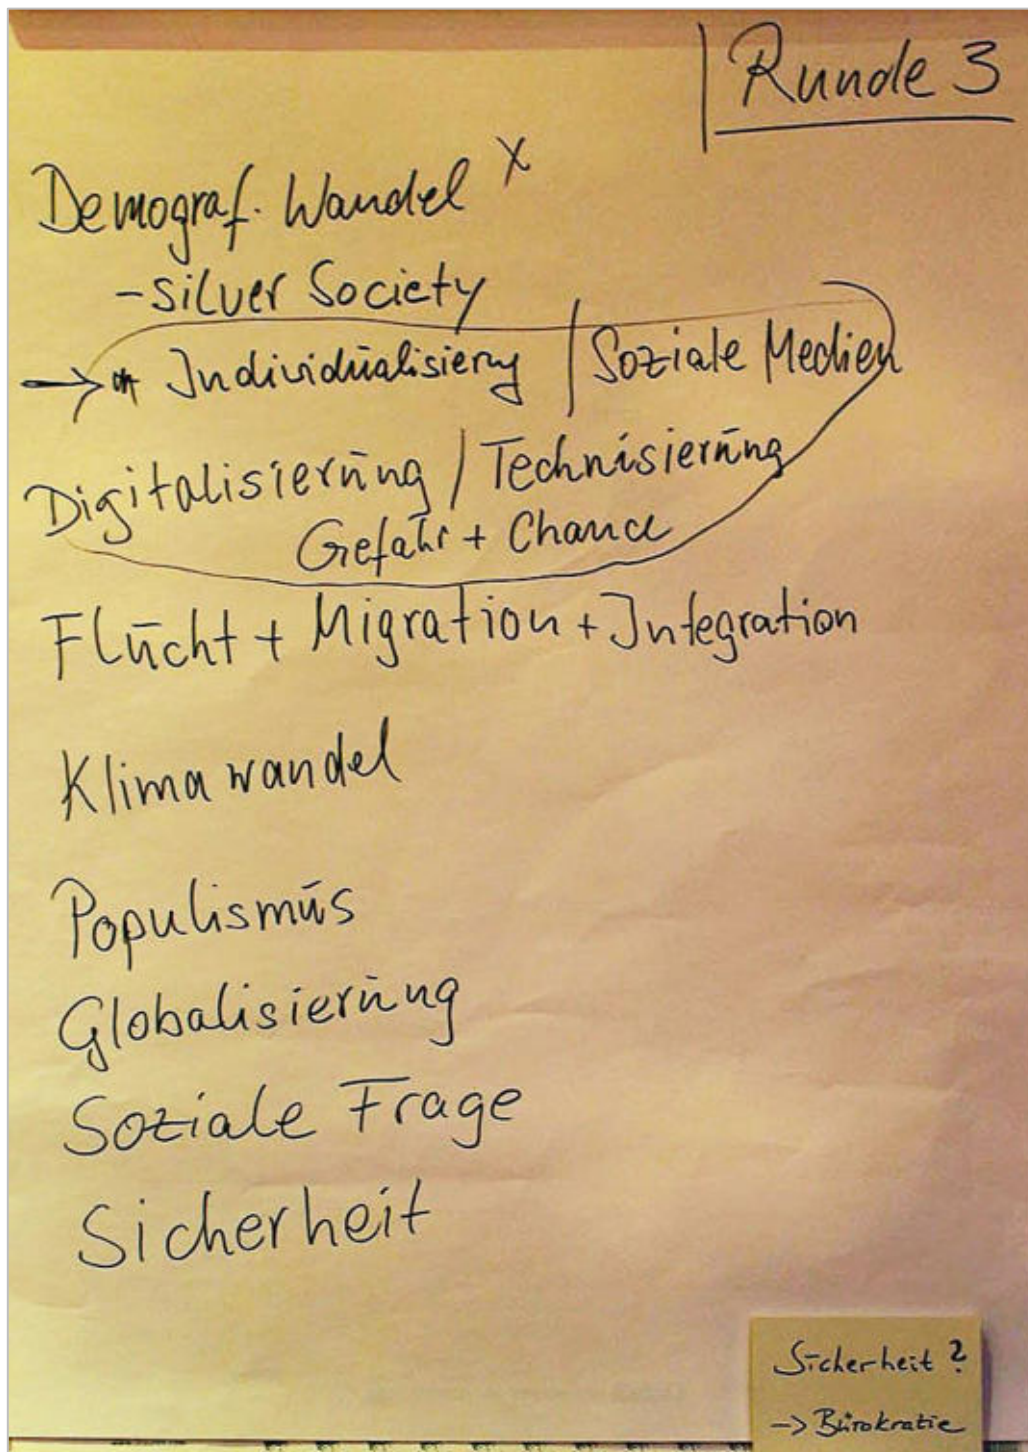 Runde 3
Demograf. Wandel x
- silver Society
→ * Individualisierung / Soziale Medien
Digitalisierung / Technisierung
Gefahr + Chance
Flucht + Migration + Integration
Klimawandel
Populismus
Globalisierung
Soziale Frage
Sicherheit
Sicherheit ?
-> Bürokratie